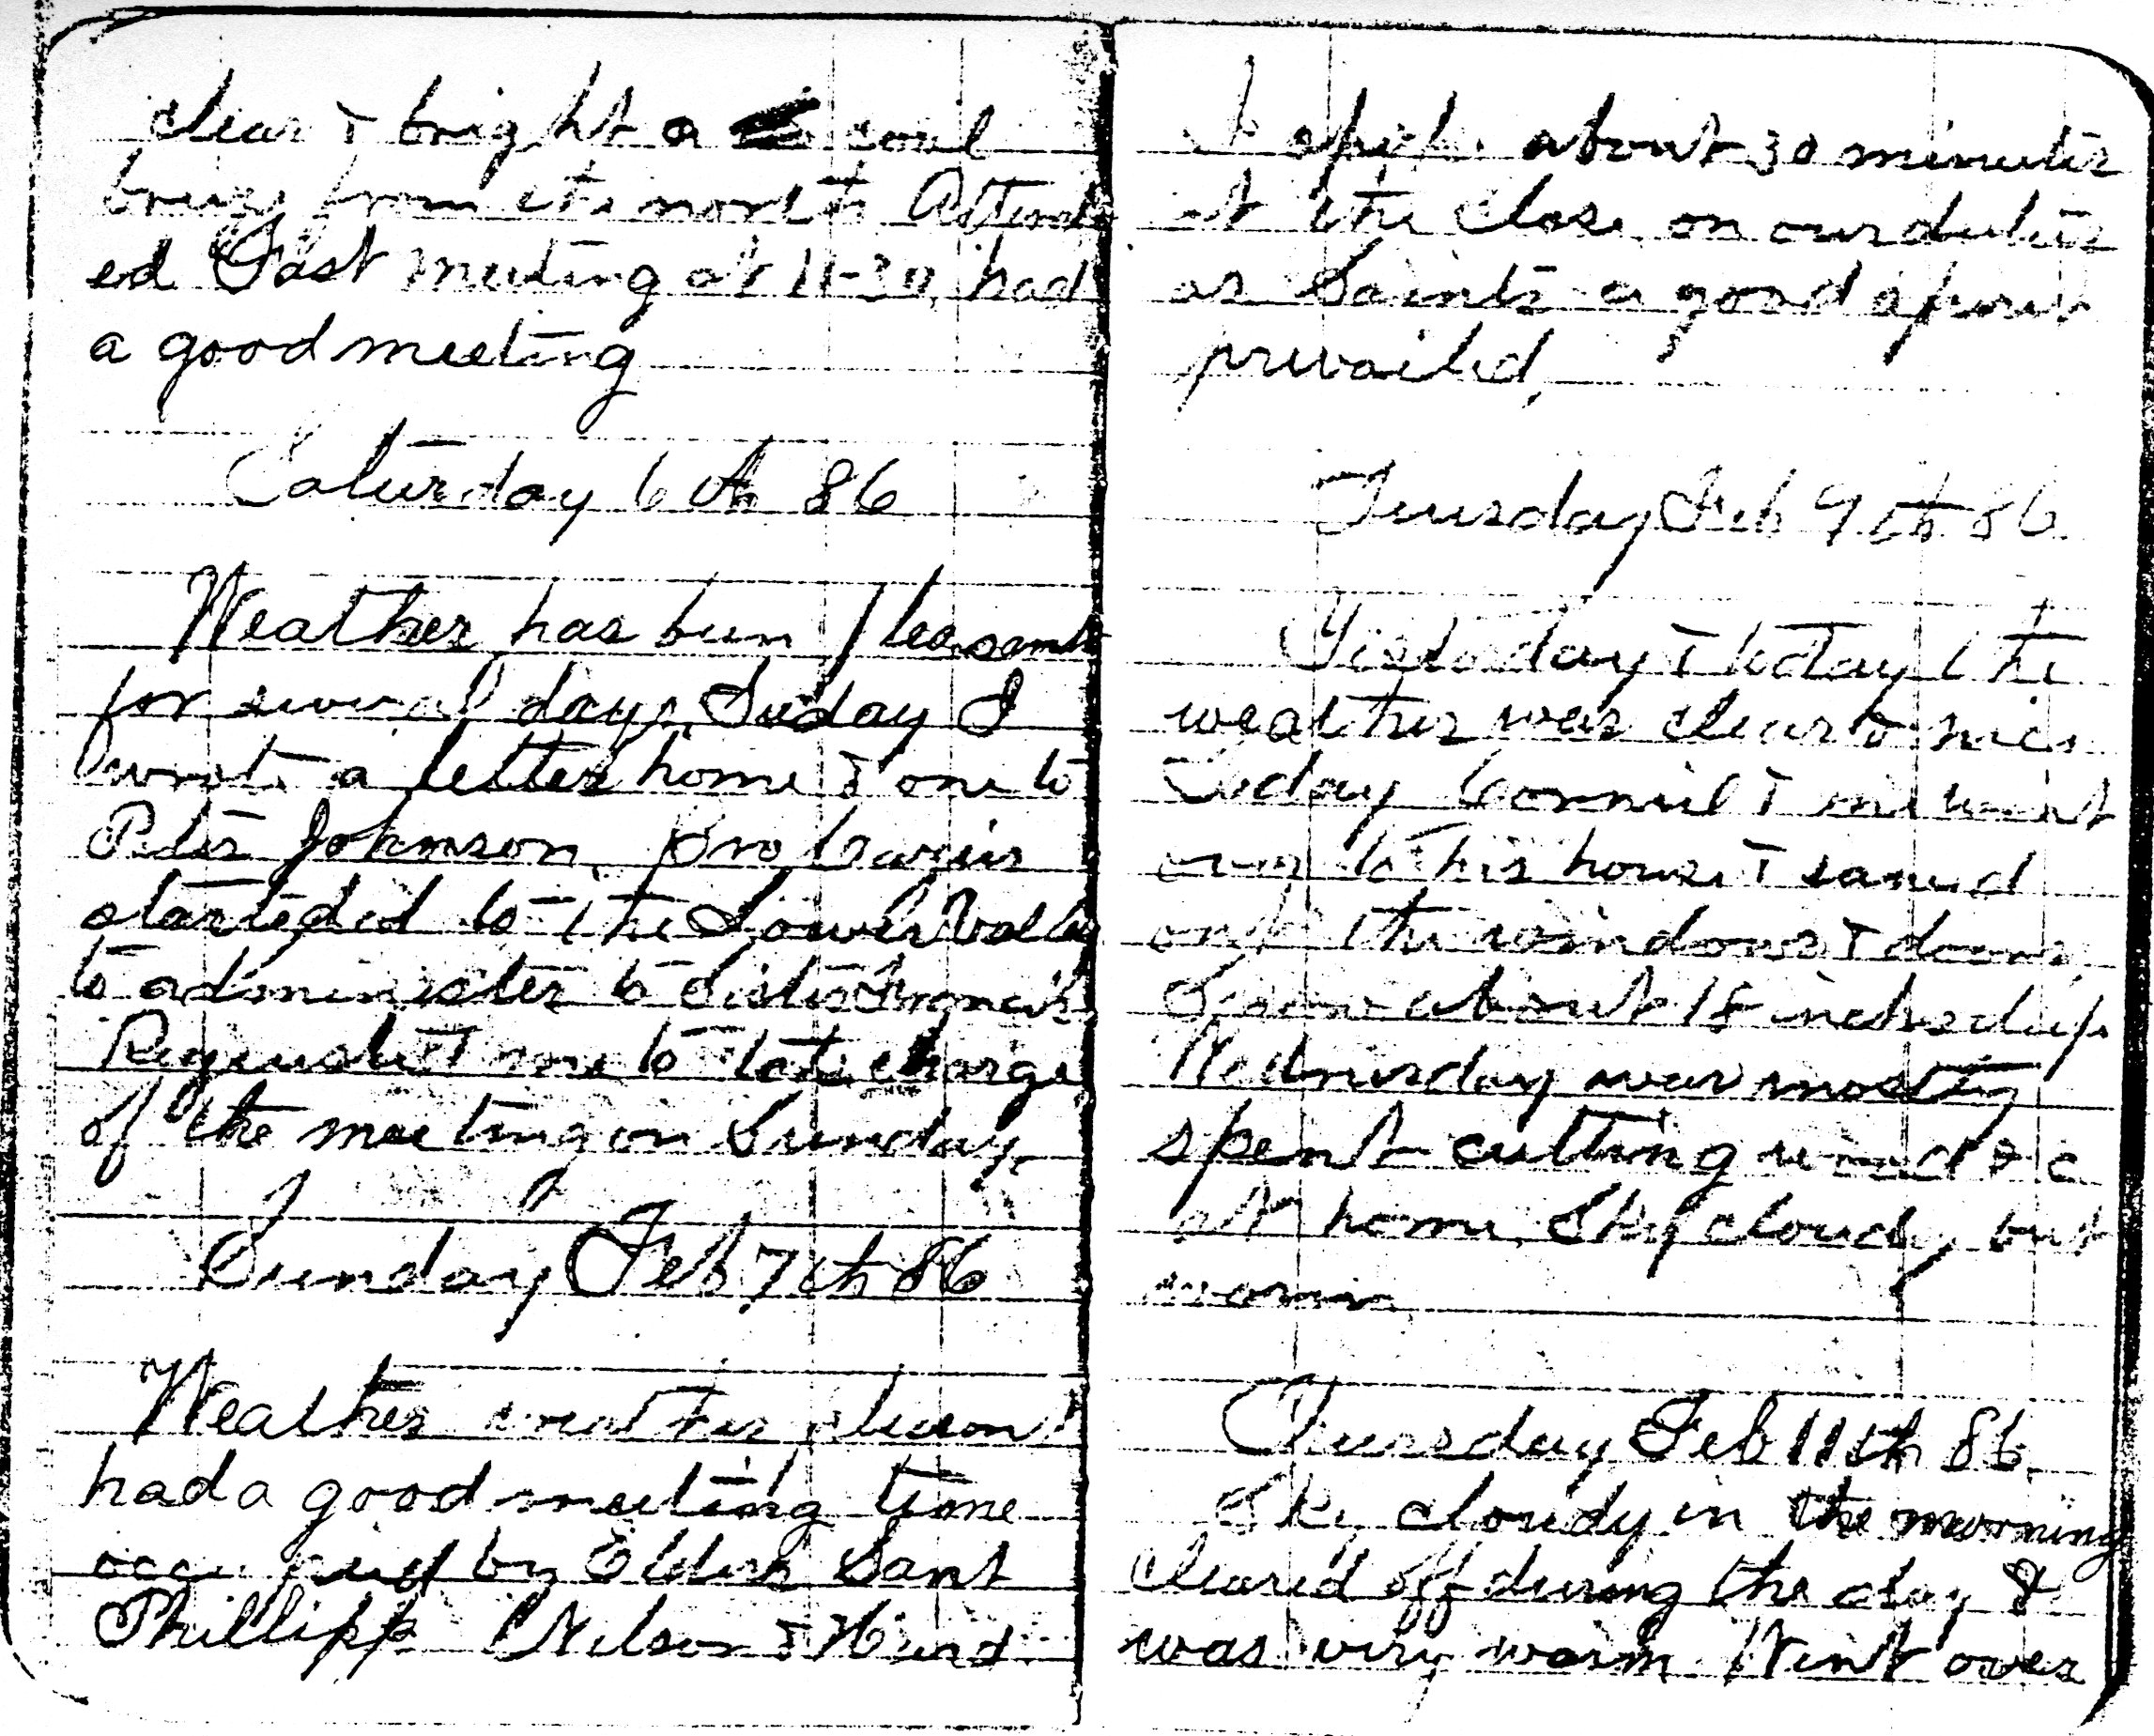 clear & bright a cool
breize from the north Attend
ed Fast meeting at 11-30, had
a good meeting
Saturday 6th 86
Weather has been pleasant
for several days, Today I
wrote a letter home & one to
Peter Johnson, Bro
started to the Lower Valley
to administer to Sister
& me to take charge
of the meeting on Sunday,
Sunday Feb 7th 86
Weather weather pleasant
had a good meeting time
occupied by Elders Sant
Phillipp Nelson &
I spoke about 30 minutes
at the close on our duties
as Saints a good spirit
prevailed,
Tuesday Feb 9th 86
Yesterday & today the
weather was clear & nice
Today & me went
over to his house & sawed
out the windows & doors,
Snow about 18 inches deep
Wednesday was mostly
spent cutting wood & c
at home, Sky cloudy but
warm
Thursday Feb 11th 86.
Sky cloudy in the morning
cleared off during the day &
was very warm Went over